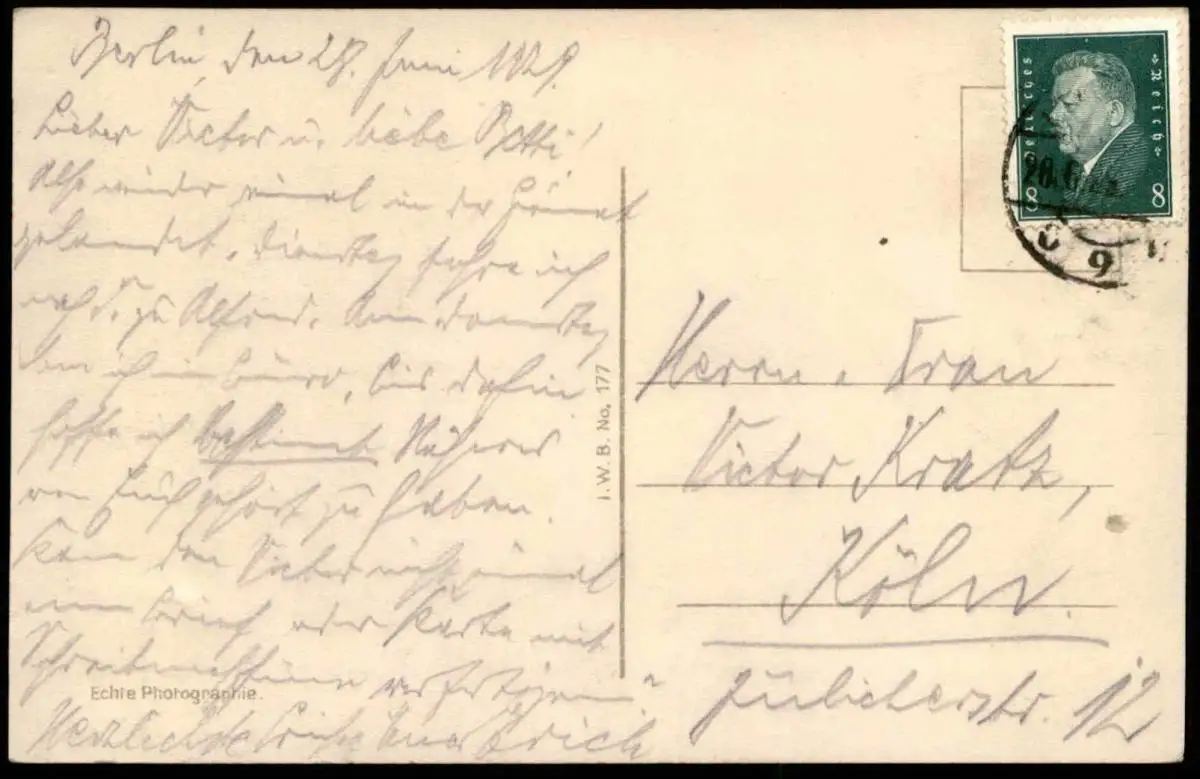 Berlin, den 28. Juni 1929.
Lieber Victor u. liebe Betti!
Also wieder einmal in der Heimat
gelandet. Dienstag fahre ich
nach D. zu Alfred. Am Donnerstag
bin ich im Büro, bis dahin
hoffe ich bestimmt Näheres
von Euch gehört zu haben.
Kann der Victor nicht einmal
einen Brief oder Karte mit
Schreibmaschine verfertigen?
Herzlichste Grüße Euer Erich
Echte Photographie.
I.W.B. No. 177
Deutsches Reich
8 8
28.6.29
9
Herrn u. Frau
Victor Kratz,
Köln.
Jülicherstr. 12